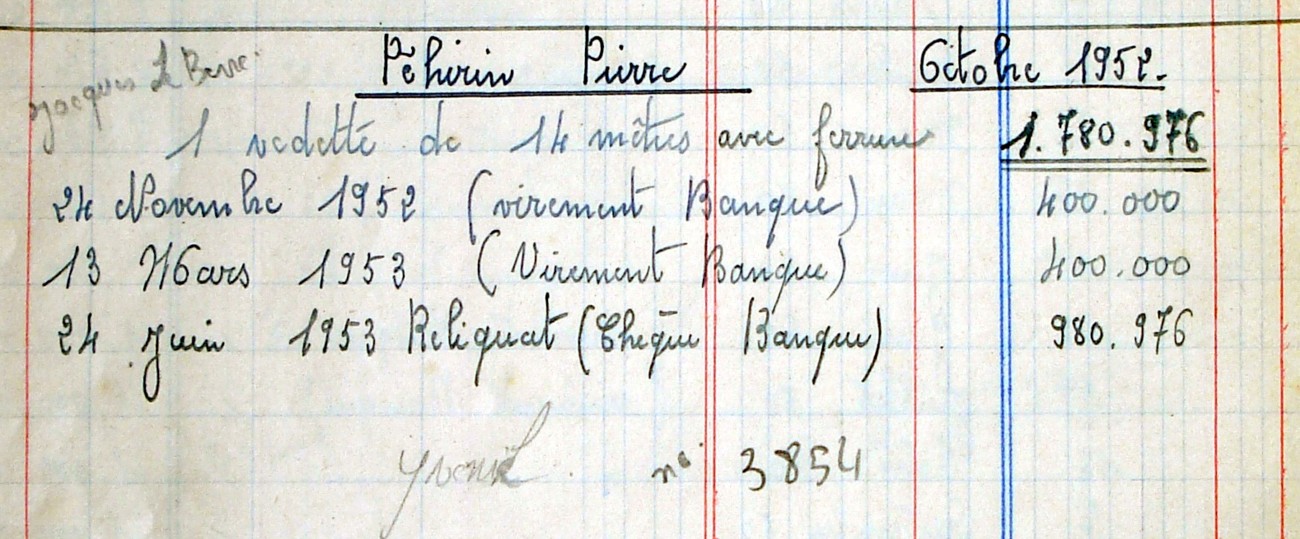 Jacques Le Berre.
Péhirin Pierre Octobre 1952.
1 vedette de 14 mètres avec ferrure 1.780.976
24 Novembre 1952 (virement Banque) 400.000
13 Mars 1953 (Virement Banque) 400.000
24 Juin 1953 Reliquat (Chèque Banque) 980.976
n° 3854